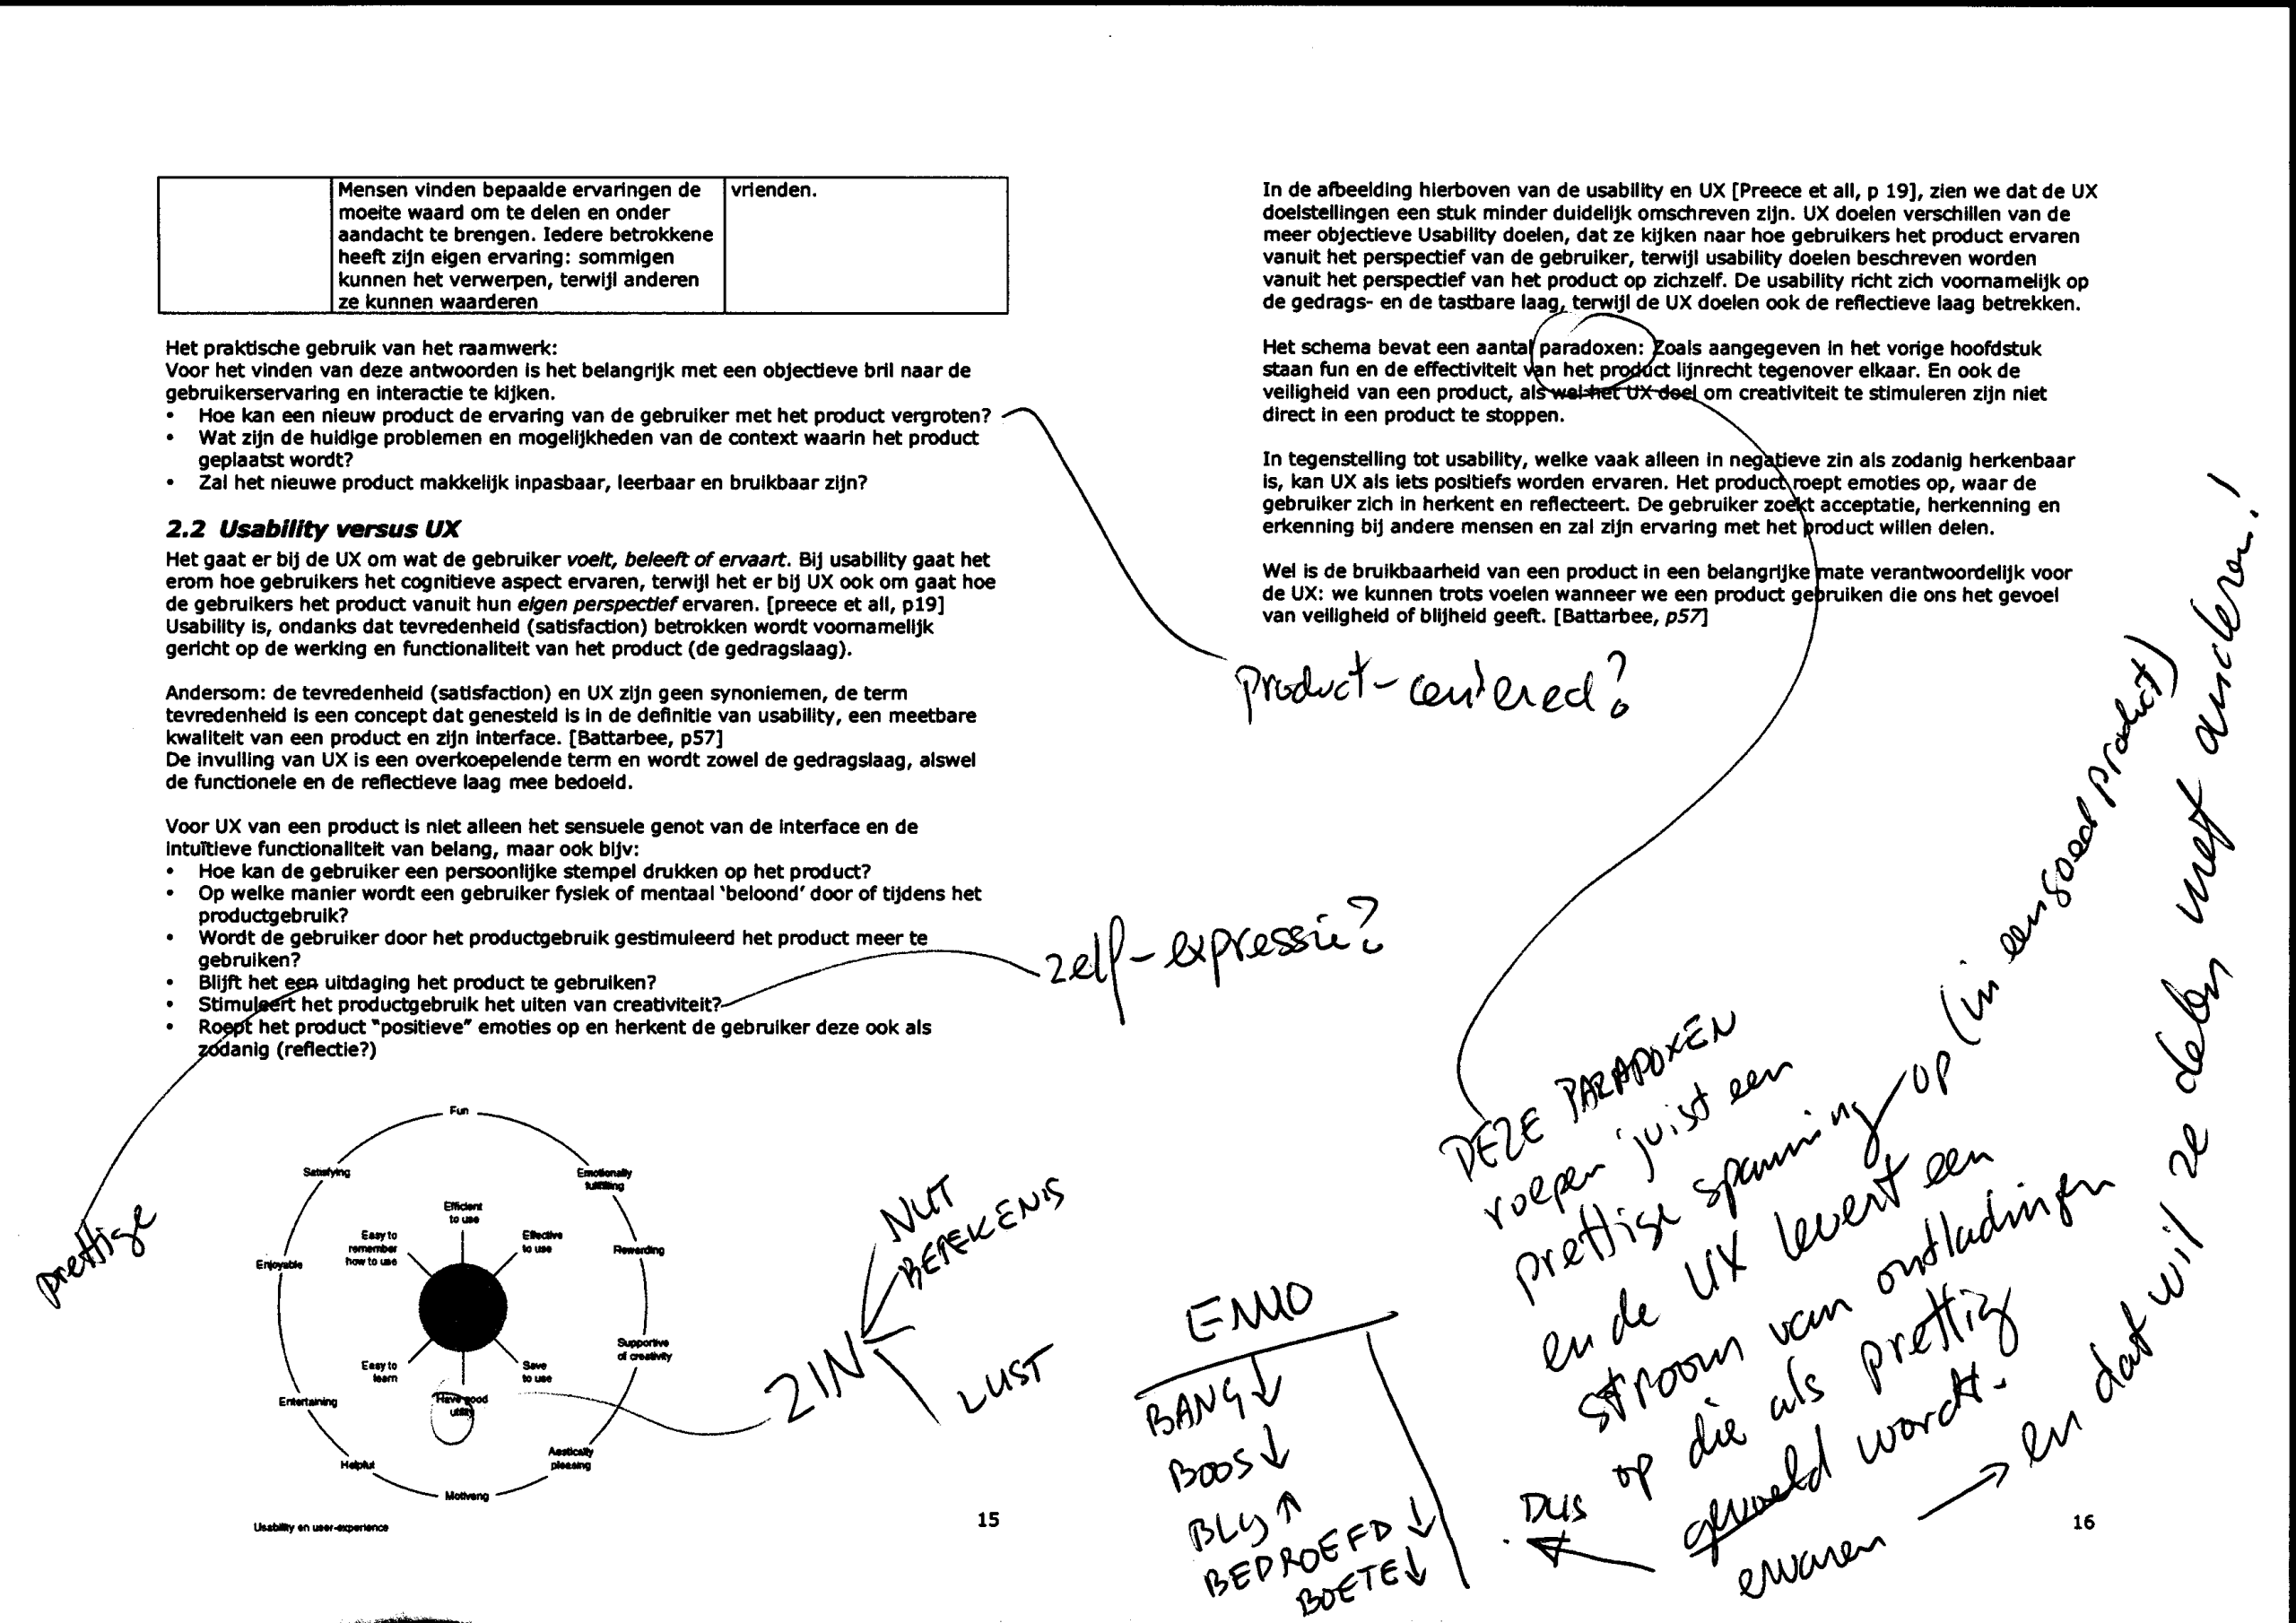 Mensen vinden bepaalde ervaringen de
moeite waard om te delen en onder
aandacht te brengen. Iedere betrokkene
heeft zijn eigen ervaring: sommigen
kunnen het verwerpen, terwijl anderen
ze kunnen waarderen
vrienden.
Het praktische gebruik van het raamwerk:
Voor het vinden van deze antwoorden is het belangrijk met een objectieve bril naar de
gebruikerservaring en interactie te kijken.
• Hoe kan een nieuw product de ervaring van de gebruiker met het product vergroten?
• Wat zijn de huidige problemen en mogelijkheden van de context waarin het product
geplaatst wordt?
• Zal het nieuwe product makkelijk inpasbaar, leerbaar en bruikbaar zijn?
2.2 Usability versus UX
Het gaat er bij de UX om wat de gebruiker voelt, beleeft of ervaart. Bij usability gaat het
erom hoe gebruikers het cognitieve aspect ervaren, terwijl het er bij UX ook om gaat hoe
de gebruikers het product vanuit hun eigen perspectief ervaren. [preece et all, p19]
Usability is, ondanks dat tevredenheid (satisfaction) betrokken wordt voornamelijk
gericht op de werking en functionaliteit van het product (de gedragslaag).
Andersom: de tevredenheid (satisfaction) en UX zijn geen synoniemen, de term
tevredenheid is een concept dat genesteld is in de definitie van usability, een meetbare
kwaliteit van een product en zijn interface. [Battarbee, p57]
De invulling van UX is een overkoepelende term en wordt zowel de gedragslaag, alswel
de functionele en de reflectieve laag mee bedoeld.
Voor UX van een product is niet alleen het sensuele genot van de interface en de
intuïtieve functionaliteit van belang, maar ook bijv:
• Hoe kan de gebruiker een persoonlijke stempel drukken op het product?
• Op welke manier wordt een gebruiker fysiek of mentaal 'beloond' door of tijdens het
productgebruik?
• Wordt de gebruiker door het productgebruik gestimuleerd het product meer te
gebruiken?
• Blijft het een uitdaging het product te gebruiken?
• Stimuleert het productgebruik het uiten van creativiteit?
• Roept het product "positieve" emoties op en herkent de gebruiker deze ook als
zodanig (reflectie?)
prettige
Fun
Satisfying
Emotionally
fulfilling
Efficient
to use
Easy to
remember
how to use
Effective
to use
Enjoyable
Rewarding
Supportive
of creativity
Easy to
learn
Save
to use
Have good
utility
Entertaining
Aestically
pleasing
Helpful
Motiveng
Usability en user-experience
ZIN
NUT
BETEKENIS
LUST
15
In de afbeelding hierboven van de usability en UX [Preece et all, p 19], zien we dat de UX
doelstellingen een stuk minder duidelijk omschreven zijn. UX doelen verschillen van de
meer objectieve Usability doelen, dat ze kijken naar hoe gebruikers het product ervaren
vanuit het perspectief van de gebruiker, terwijl usability doelen beschreven worden
vanuit het perspectief van het product op zichzelf. De usability richt zich voornamelijk op
de gedrags- en de tastbare laag, terwijl de UX doelen ook de reflectieve laag betrekken.
Het schema bevat een aantal paradoxen: Zoals aangegeven in het vorige hoofdstuk
staan fun en de effectiviteit van het product lijnrecht tegenover elkaar. En ook de
veiligheid van een product, als wel het UX doel om creativiteit te stimuleren zijn niet
direct in een product te stoppen.
In tegenstelling tot usability, welke vaak alleen in negatieve zin als zodanig herkenbaar
is, kan UX als iets positiefs worden ervaren. Het product roept emoties op, waar de
gebruiker zich in herkent en reflecteert. De gebruiker zoekt acceptatie, herkenning en
erkenning bij andere mensen en zal zijn ervaring met het product willen delen.
Wel is de bruikbaarheid van een product in een belangrijke mate verantwoordelijk voor
de UX: we kunnen trots voelen wanneer we een product gebruiken die ons het gevoel
van veiligheid of blijheid geeft. [Battarbee, p57]
Product-centered?
zelf-expressie?
DEZE PARADOXEN
roepen juist een
prettige spanning op (in een goed product)
en de UX levert een
stroom van ontladingen
op die als prettig
gevoeld wordt.
ervaren → en dat wil ze delen met anderen!
DUS
EMMO
BANG ↓
BOOS ↓
BLIJ ↑
BEDROEFD ↓
BOETE ↓
16